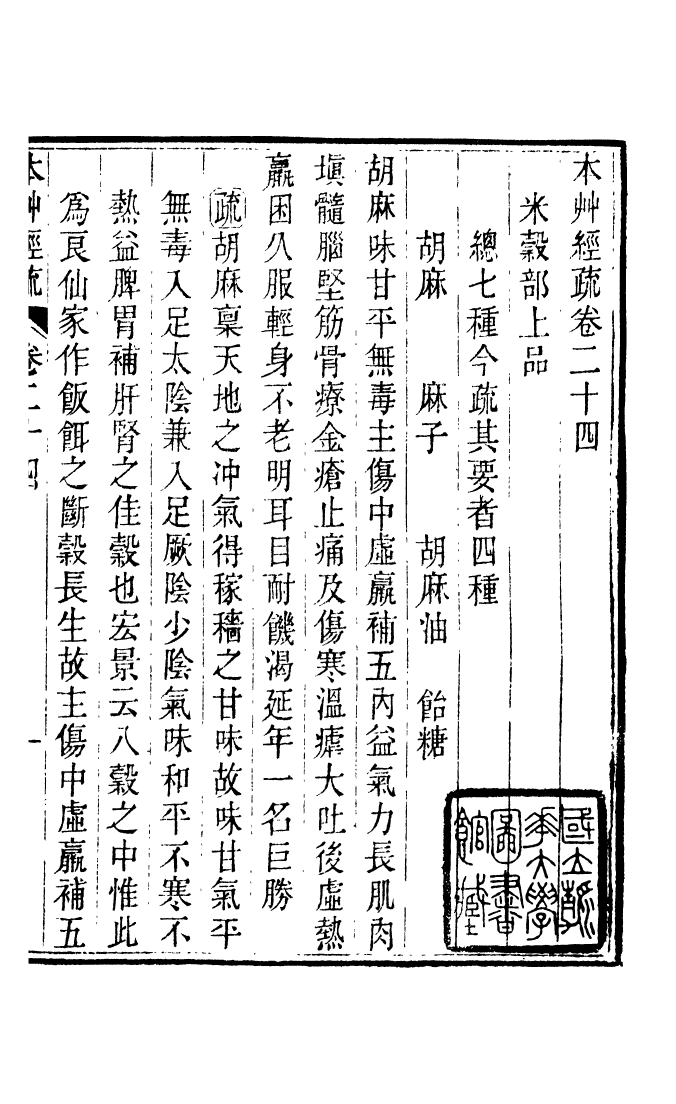 本艸經疏卷二十四
米穀部上品
總七種今疏其要者四種
胡麻　麻子　胡麻油　飴糖
胡麻味甘平無毒主傷中虛羸補五內益氣力長肌肉
塡髓腦堅筋骨療金瘡止痛及傷寒溫瘧大吐後虛熱
羸困久服輕身不老明耳目耐饑渴延年一名巨勝
疏胡麻稟天地之冲氣得稼穡之甘味故味甘氣平
無毒入足太陰兼入足厥陰少陰氣味和平不寒不
熱益脾胃補肝腎之佳穀也宏景云八穀之中惟此
為良仙家作飯餌之斷穀長生故主傷中虛羸補五
本艸經疏　卷二十四　一
國立北平大學圖書館藏